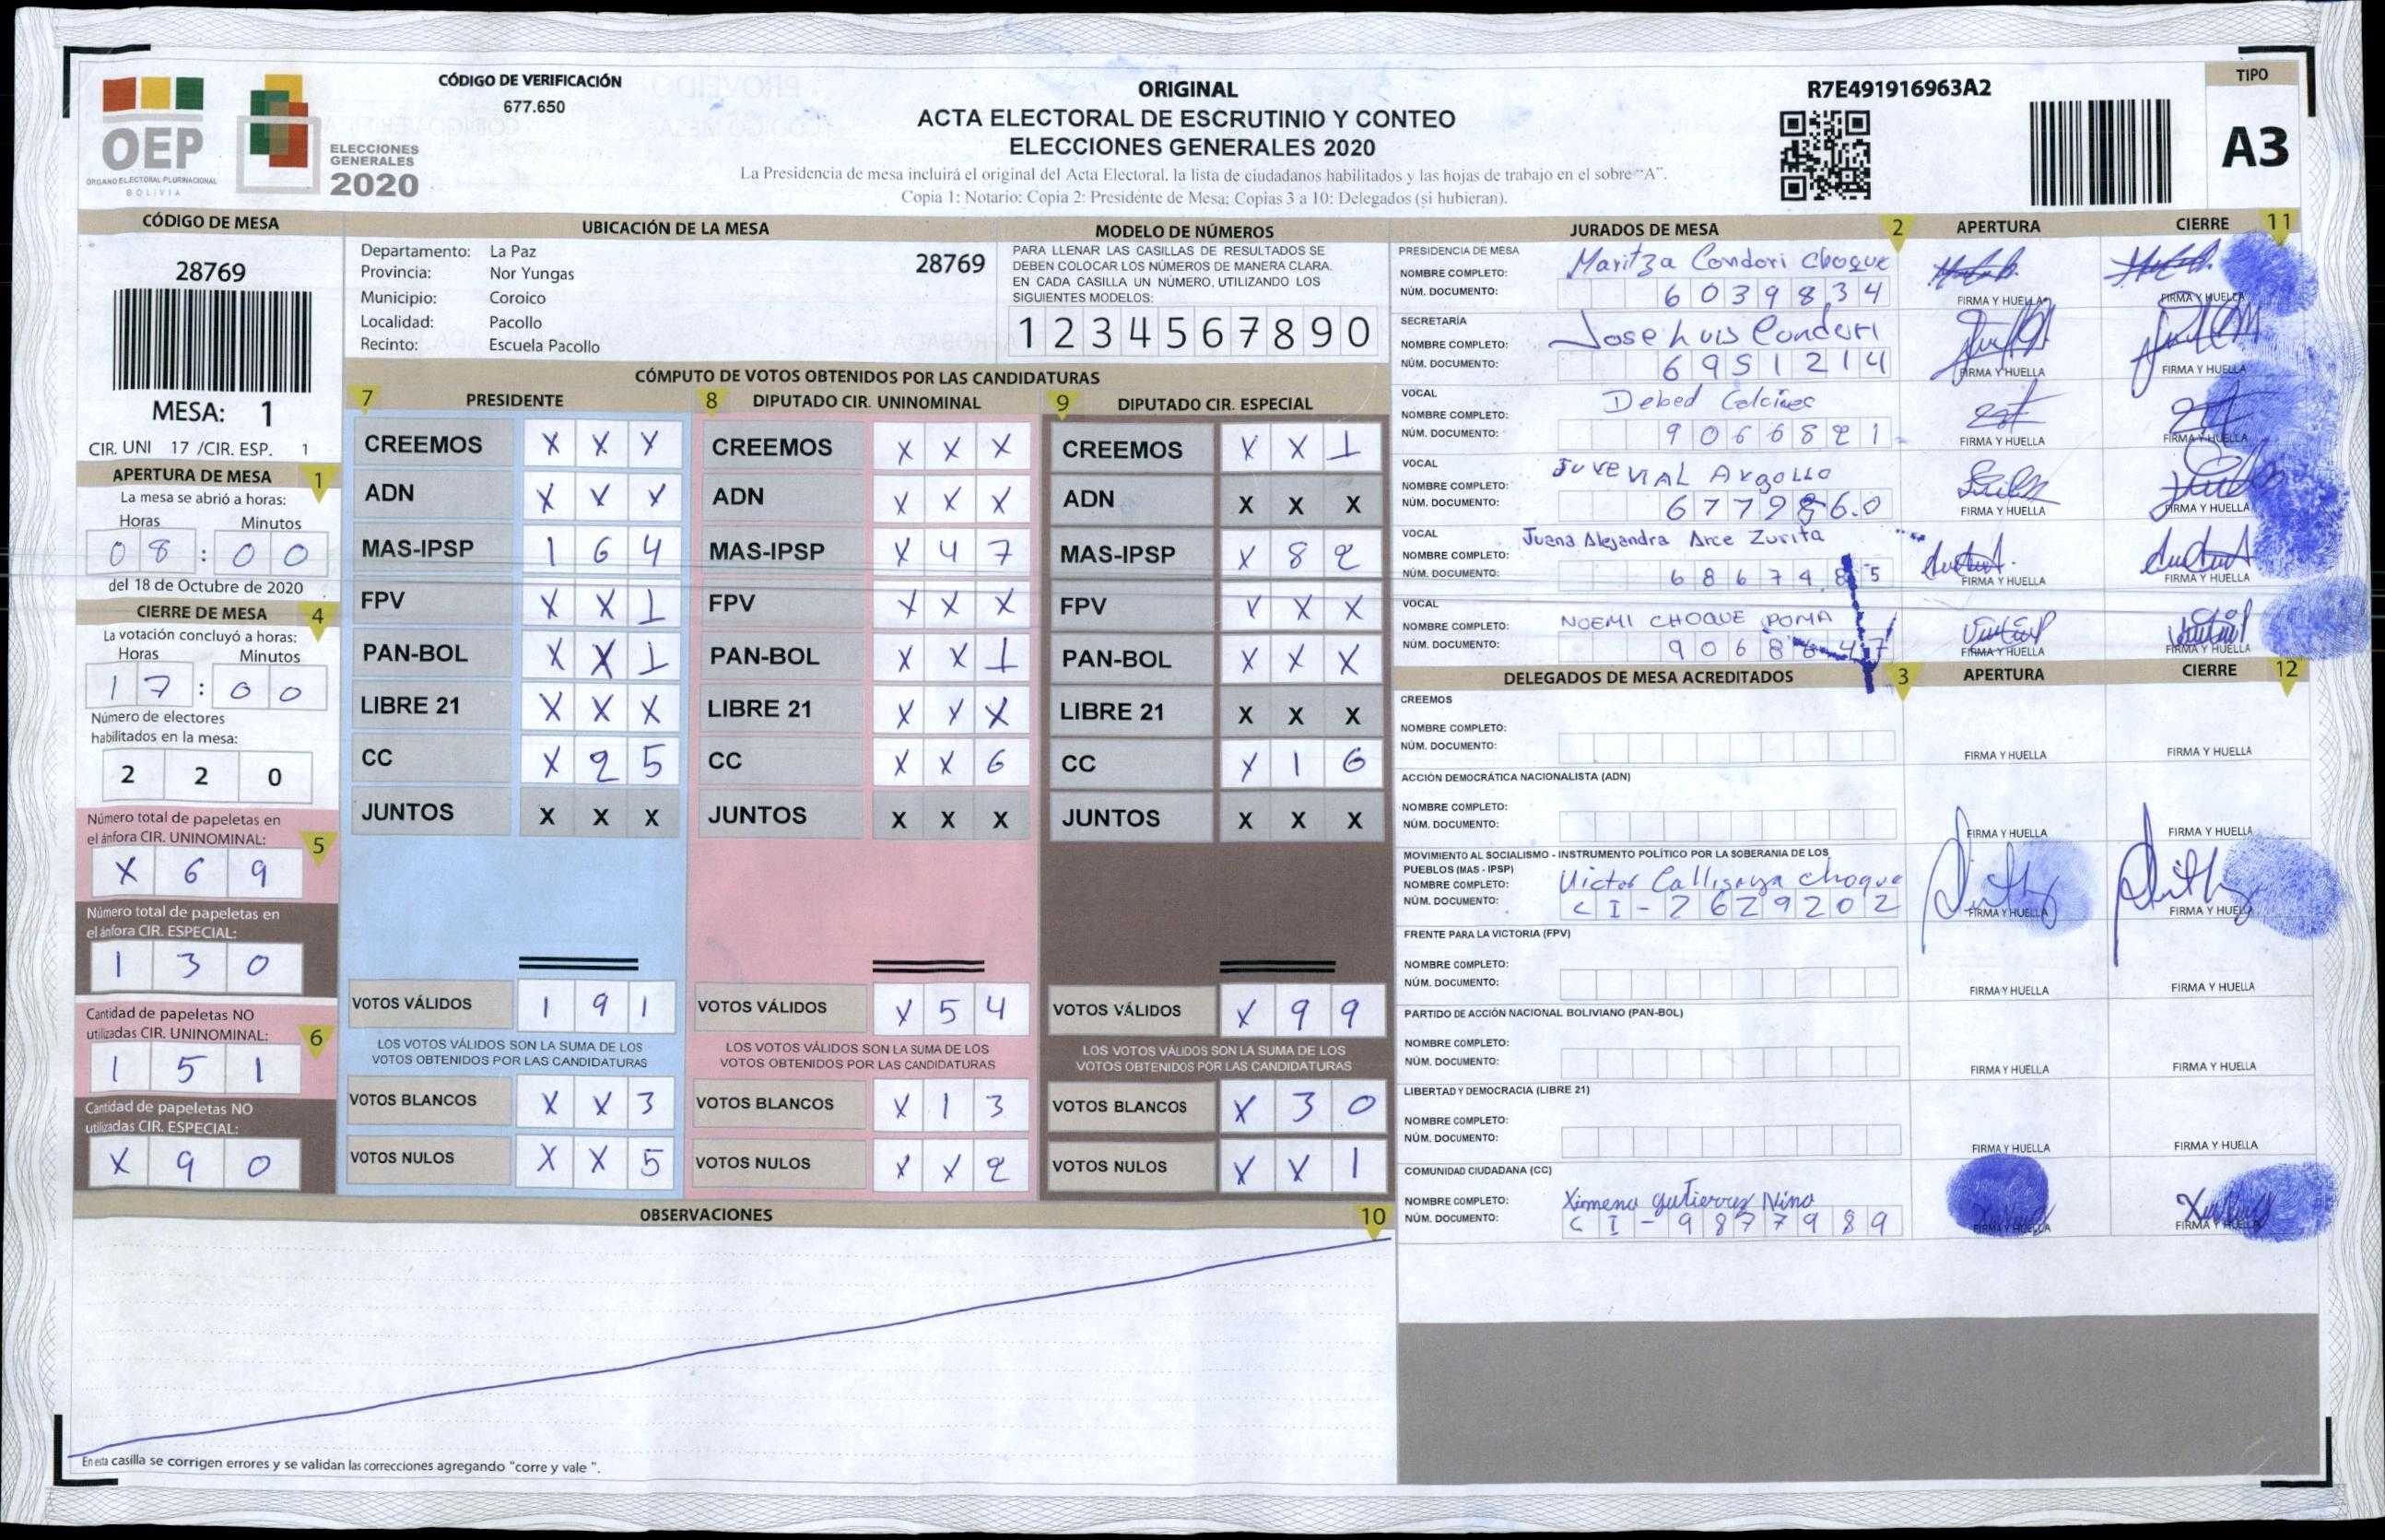 OEP
ÓRGANO ELECTORAL PLURINACIONAL
BOLIVIA
ELECCIONES
GENERALES
2020
CÓDIGO DE VERIFICACIÓN
677.650
ORIGINAL
ACTA ELECTORAL DE ESCRUTINIO Y CONTEO
ELECCIONES GENERALES 2020
La Presidencia de mesa incluirá el original del Acta Electoral, la lista de ciudadanos habilitados y las hojas de trabajo en el sobre “A”.
Copia 1: Notario; Copia 2: Presidente de Mesa; Copias 3 a 10: Delegados (si hubieran).
R7E491916963A2
TIPO
A3
CÓDIGO DE MESA
28769
MESA: 1
CIR. UNI 17 /CIR. ESP. 1
APERTURA DE MESA 1
La mesa se abrió a horas:
Horas Minutos
0 8 : 0 0
del 18 de Octubre de 2020
CIERRE DE MESA 4
La votación concluyó a horas:
Horas Minutos
1 7 : 0 0
Número de electores
habilitados en la mesa:
2 2 0
Número total de papeletas en
el ánfora CIR. UNINOMINAL: 5
X 6 9
Número total de papeletas en
el ánfora CIR. ESPECIAL:
1 3 0
Cantidad de papeletas NO
utilizadas CIR. UNINOMINAL: 6
1 5 1
Cantidad de papeletas NO
utilizadas CIR. ESPECIAL:
X 9 0
UBICACIÓN DE LA MESA
Departamento: La Paz
28769
Provincia: Nor Yungas
Municipio: Coroico
Localidad: Pacollo
Recinto: Escuela Pacollo
MODELO DE NÚMEROS
PARA LLENAR LAS CASILLAS DE RESULTADOS SE
DEBEN COLOCAR LOS NÚMEROS DE MANERA CLARA.
EN CADA CASILLA UN NÚMERO, UTILIZANDO LOS
SIGUIENTES MODELOS:
1 2 3 4 5 6 7 8 9 0
CÓMPUTO DE VOTOS OBTENIDOS POR LAS CANDIDATURAS
7 PRESIDENTE
CREEMOS X X X
ADN X X X
MAS-IPSP 1 6 4
FPV X X 1
PAN-BOL X X 1
LIBRE 21 X X X
CC X 2 5
JUNTOS X X X
VOTOS VÁLIDOS 1 9 1
LOS VOTOS VÁLIDOS SON LA SUMA DE LOS
VOTOS OBTENIDOS POR LAS CANDIDATURAS
VOTOS BLANCOS X X 3
VOTOS NULOS X X 5
8 DIPUTADO CIR. UNINOMINAL
CREEMOS X X X
ADN X X X
MAS-IPSP X 4 7
FPV X X X
PAN-BOL X X 1
LIBRE 21 X X X
CC X X 6
JUNTOS X X X
VOTOS VÁLIDOS X 5 4
LOS VOTOS VÁLIDOS SON LA SUMA DE LOS
VOTOS OBTENIDOS POR LAS CANDIDATURAS
VOTOS BLANCOS X 1 3
VOTOS NULOS X X 2
9 DIPUTADO CIR. ESPECIAL
CREEMOS X X 1
ADN X X X
MAS-IPSP X 8 2
FPV X X X
PAN-BOL X X X
LIBRE 21 X X X
CC X 1 6
JUNTOS X X X
VOTOS VÁLIDOS X 9 9
LOS VOTOS VÁLIDOS SON LA SUMA DE LOS
VOTOS OBTENIDOS POR LAS CANDIDATURAS
VOTOS BLANCOS X 3 0
VOTOS NULOS X X 1
OBSERVACIONES 10
En esta casilla se corrigen errores y se validan las correcciones agregando "corre y vale ".
JURADOS DE MESA 2 APERTURA CIERRE 11
PRESIDENCIA DE MESA
NOMBRE COMPLETO: Maritza Condori Choque
NÚM. DOCUMENTO: 6 0 3 9 8 3 4
FIRMA Y HUELLA FIRMA Y HUELLA
SECRETARÍA
NOMBRE COMPLETO: Jose Luis Condori
NÚM. DOCUMENTO: 6 9 5 1 2 1 4
FIRMA Y HUELLA FIRMA Y HUELLA
VOCAL
NOMBRE COMPLETO: Debed
NÚM. DOCUMENTO: 9 0 6 6 8 2 1
FIRMA Y HUELLA FIRMA Y HUELLA
VOCAL
NOMBRE COMPLETO: JUVENAL Argollo
NÚM. DOCUMENTO:
FIRMA Y HUELLA FIRMA Y HUELLA
VOCAL
NOMBRE COMPLETO: Juana Alejandra Arce Zurita
NÚM. DOCUMENTO: 6 8 6 7 4 8 5
FIRMA Y HUELLA FIRMA Y HUELLA
VOCAL
NOMBRE COMPLETO: NOEMI CHOQUE POMA
NÚM. DOCUMENTO:
FIRMA Y HUELLA FIRMA Y HUELLA
DELEGADOS DE MESA ACREDITADOS 3 APERTURA CIERRE 12
CREEMOS
NOMBRE COMPLETO:
NÚM. DOCUMENTO:
FIRMA Y HUELLA FIRMA Y HUELLA
ACCIÓN DEMOCRÁTICA NACIONALISTA (ADN)
NOMBRE COMPLETO:
NÚM. DOCUMENTO:
FIRMA Y HUELLA FIRMA Y HUELLA
MOVIMIENTO AL SOCIALISMO - INSTRUMENTO POLÍTICO POR LA SOBERANIA DE LOS
PUEBLOS (MAS - IPSP)
NOMBRE COMPLETO: Victor Callisaya Choque
NÚM. DOCUMENTO: C I - 2 6 2 9 2 0 2
FIRMA Y HUELLA FIRMA Y HUELLA
FRENTE PARA LA VICTORIA (FPV)
NOMBRE COMPLETO:
NÚM. DOCUMENTO:
FIRMA Y HUELLA FIRMA Y HUELLA
PARTIDO DE ACCIÓN NACIONAL BOLIVIANO (PAN-BOL)
NOMBRE COMPLETO:
NÚM. DOCUMENTO:
FIRMA Y HUELLA FIRMA Y HUELLA
LIBERTAD Y DEMOCRACIA (LIBRE 21)
NOMBRE COMPLETO:
NÚM. DOCUMENTO:
FIRMA Y HUELLA FIRMA Y HUELLA
COMUNIDAD CIUDADANA (CC)
NOMBRE COMPLETO: Ximena Gutierrez Nina
NÚM. DOCUMENTO: C I - 9 8 7 7 9 8 9
FIRMA Y HUELLA FIRMA Y HUELLA